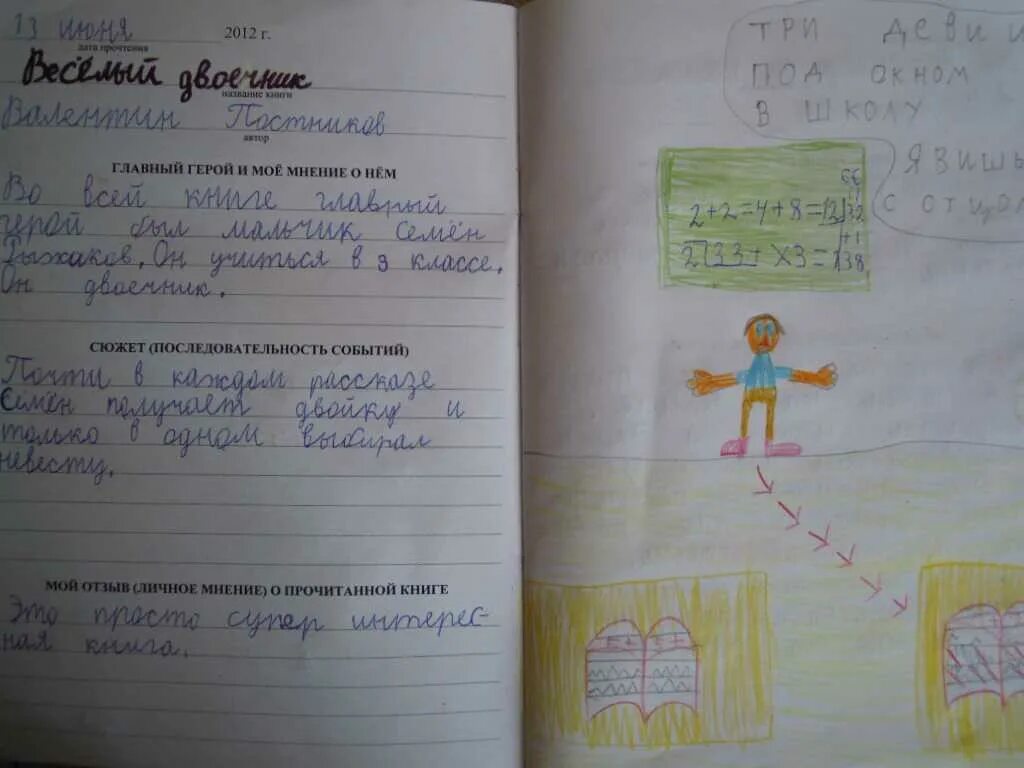 13 июня 2012 г.
дата прочтения
Весёлый двоечник
название книги
Валентин Постников
автор
ГЛАВНЫЙ ГЕРОЙ И МОЁ МНЕНИЕ О НЁМ
Во всей книге главный
герой был мальчик Семён
Рыжаков. Он учиться в 3 классе.
Он двоечник.
СЮЖЕТ (ПОСЛЕДОВАТЕЛЬНОСТЬ СОБЫТИЙ)
Почти в каждом рассказе
Семён получает двойку и
только в одном выбирал
невесту.
МОЙ ОТЗЫВ (ЛИЧНОЕ МНЕНИЕ) О ПРОЧИТАННОЙ КНИГЕ
Это просто супер интерес-
ная книга.
ТРИ ДЕВИ
ПОД ОКНОМ
В ШКОЛУ
ЯВИШЬ
С ОТЦОМ
2+2=4+8=12